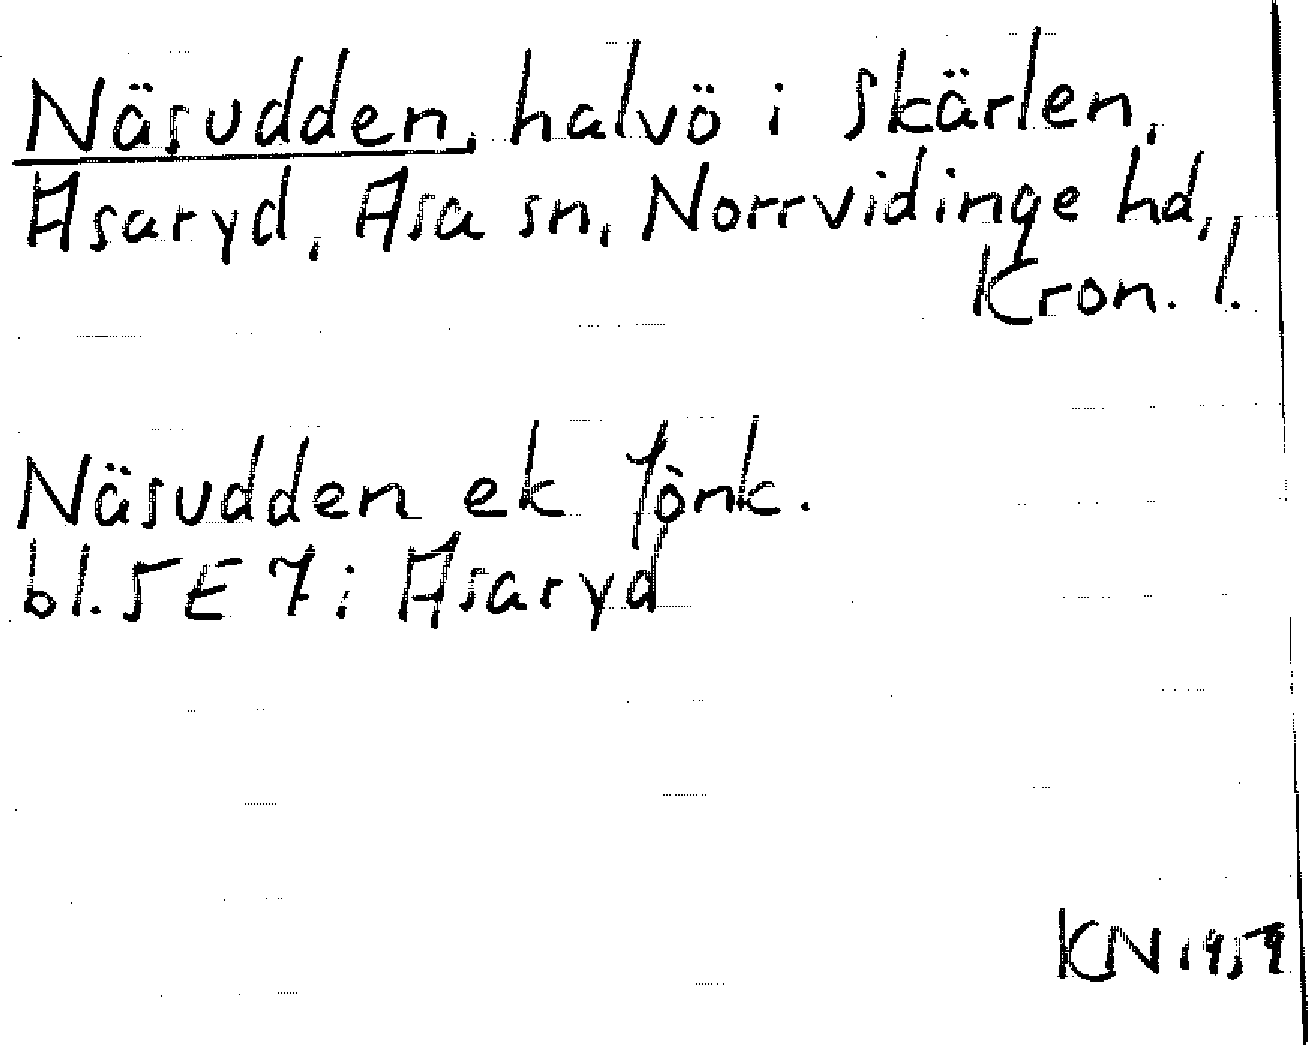 Näsudden, halvö i Skärlen,
Asaryd, Asa sn, Norrvidinge hd,
Kron. l.
Näsudden ek Jönk.
bl. 5 E 7 : Asaryd
KN 1959